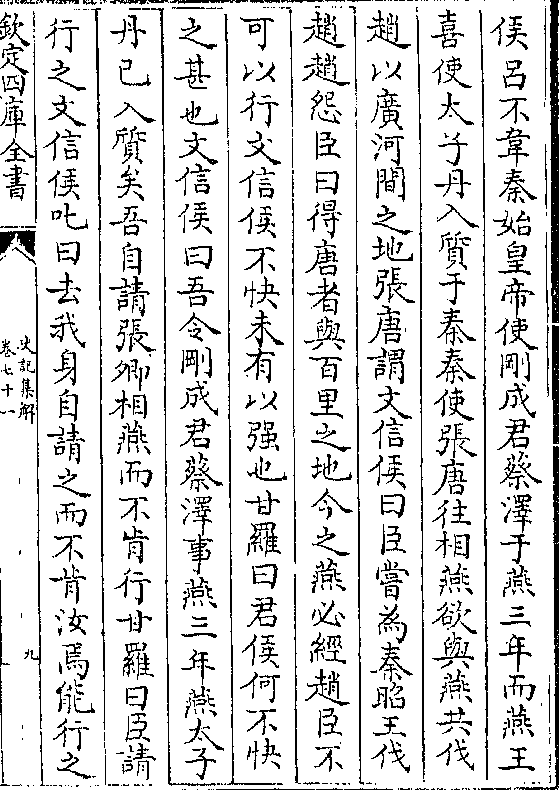 侯呂不韋秦始皇帝使剛成君蔡澤于燕三年而燕王
喜使太子丹入質于秦秦使張唐往相燕欲與燕共伐
趙以廣河間之地張唐謂文信侯曰臣嘗為秦昭王伐
趙趙怨臣曰得唐者與百里之地今之燕必經趙臣不
可以行文信侯不快未有以强也甘羅曰君侯何不快
之甚也文信侯曰吾令剛成君蔡澤事燕三年燕太子
丹已入質矣吾自請張卿相燕而不肯行甘羅曰臣請
行之文信侯叱曰去我身自請之而不肯汝焉能行之
欽定四庫全書
史記集解
卷七十一
九